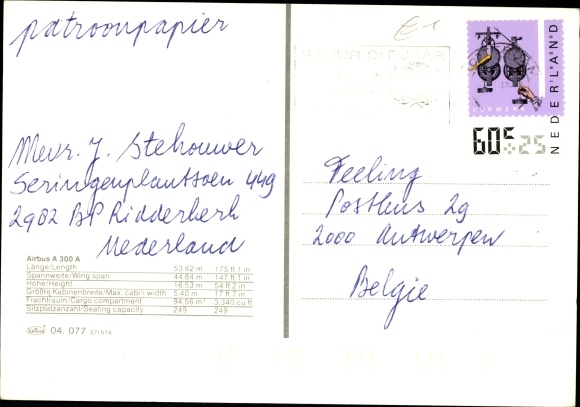 patroonpapier
€1
STUUR DIT JAAR
UURWERK
NEDERLAND
60c+25
Mevr. J. Stehouwer
Seringenplantsoen 449
2982 BP Ridderkerk
Nederland
Feeling
Postbus 29
2000 Antwerpen
Belgie
Airbus A 300 A
Länge/Length 53,62 m 175 ft 1 in
Spannweite/Wing span 44,84 m 147 ft 1 in
Höhe/Height 16,53 m 54 ft 2 in
Größte Kabinenbreite/Max. cabin width 5,40 m 17 ft 7 in
Frachtraum/Cargo compartment 94,56 m³ 3,340 cu ft
Sitzplatzanzahl/Seating capacity 249 249
04. 077 271574